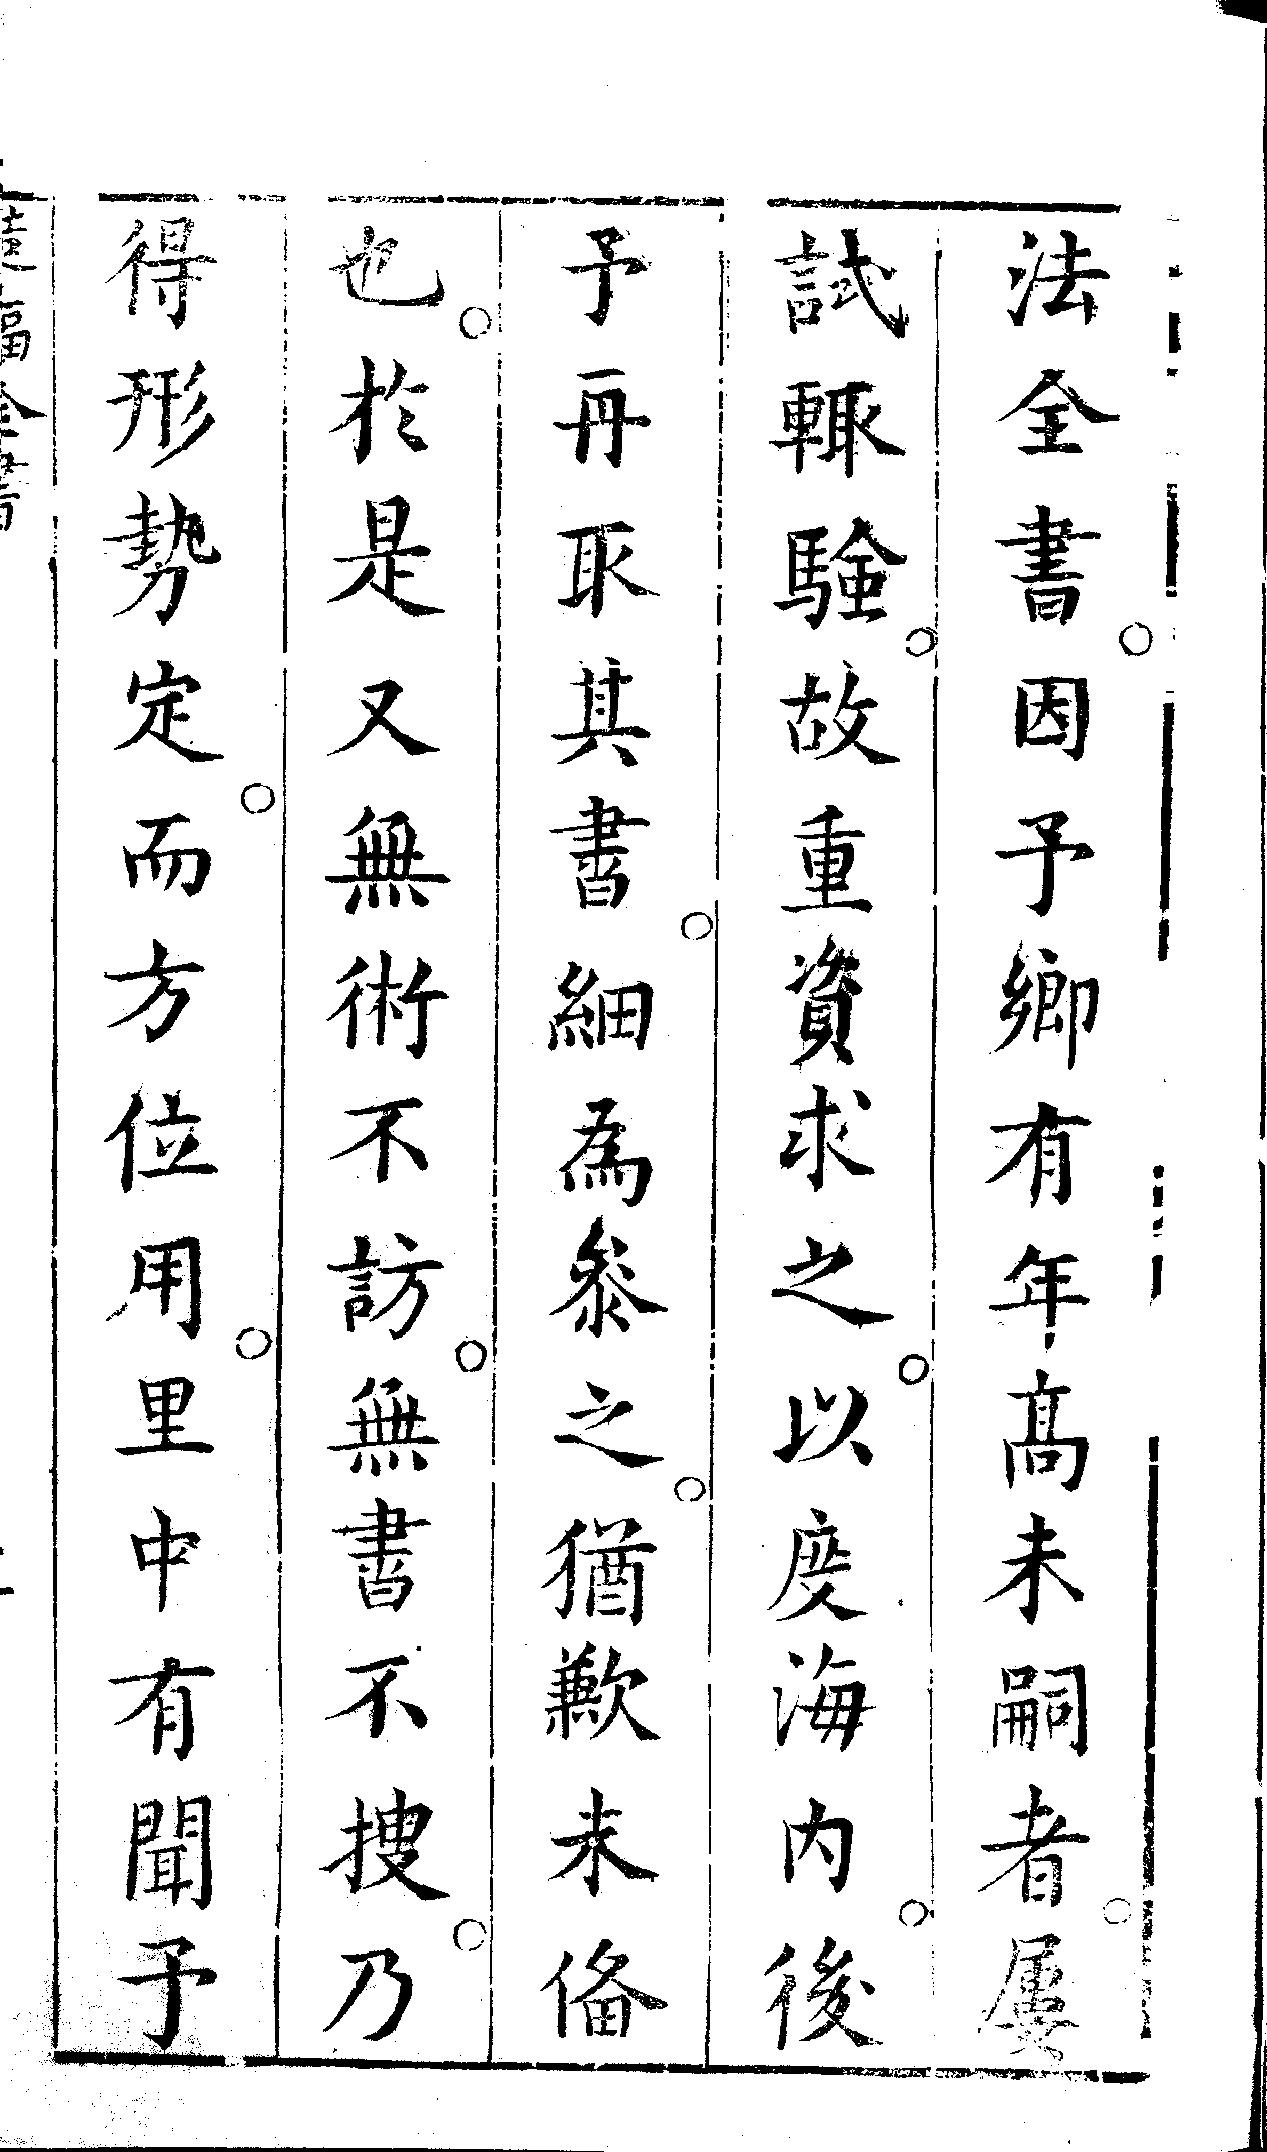 法全書○因予鄉有年髙未嗣者○屢
試輙騐○故重資求之○以度海内○後
予再取其書○細為叅之○猶歉未俻
也○於是又無術不訪○無書不搜○乃
得形勢定○而方位用○里中有聞予
福全書